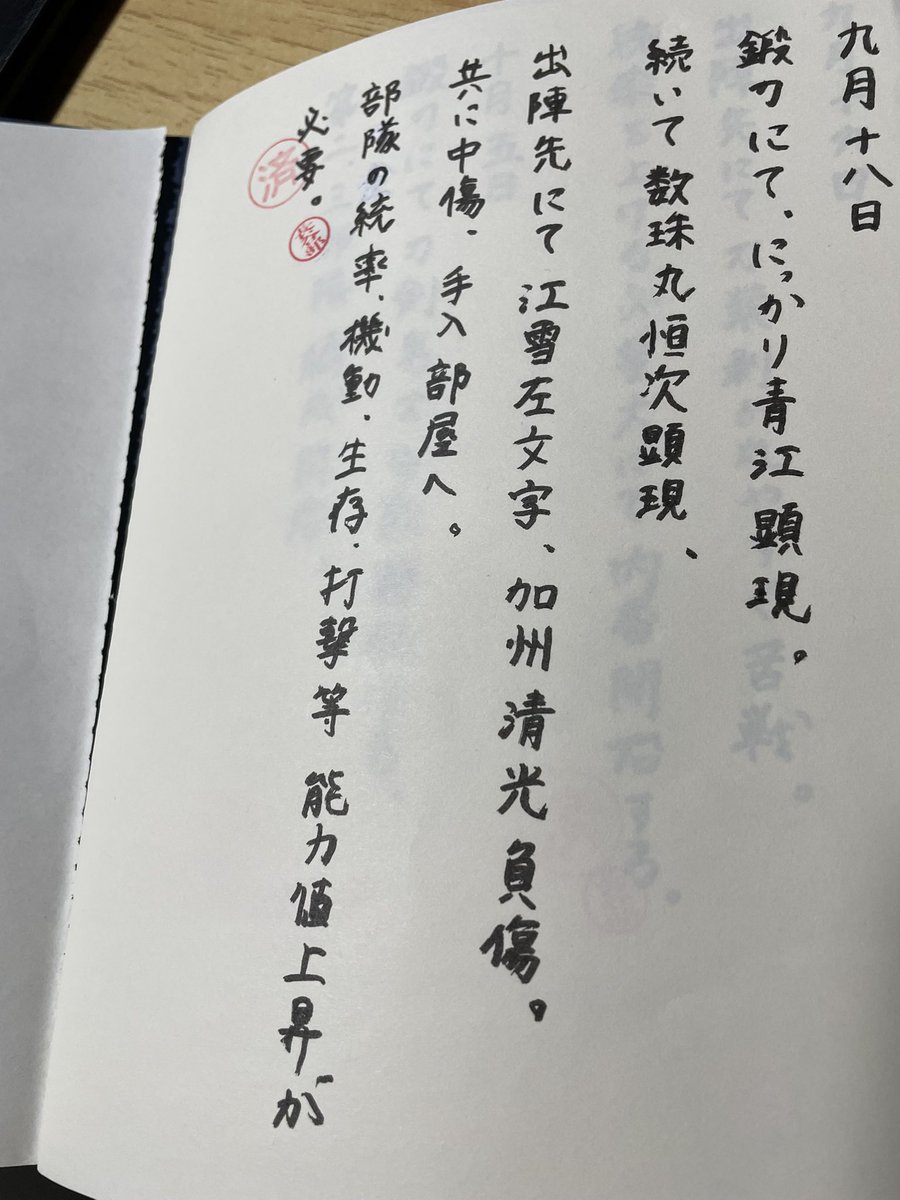 九月十八日
鍛刀にて、にっかり青江顕現。
続いて数珠丸恒次顕現、
出陣先にて江雪左文字、加州清光負傷。
共に中傷、手入部屋へ。
部隊の統率、機動、生存、打撃等 能力値上昇が
必要。
済